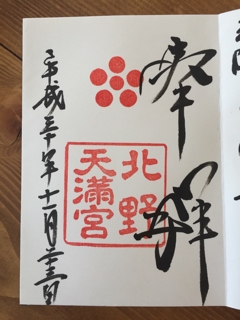 奉拝
北野
天満宮
平成三十年十一月二十三日